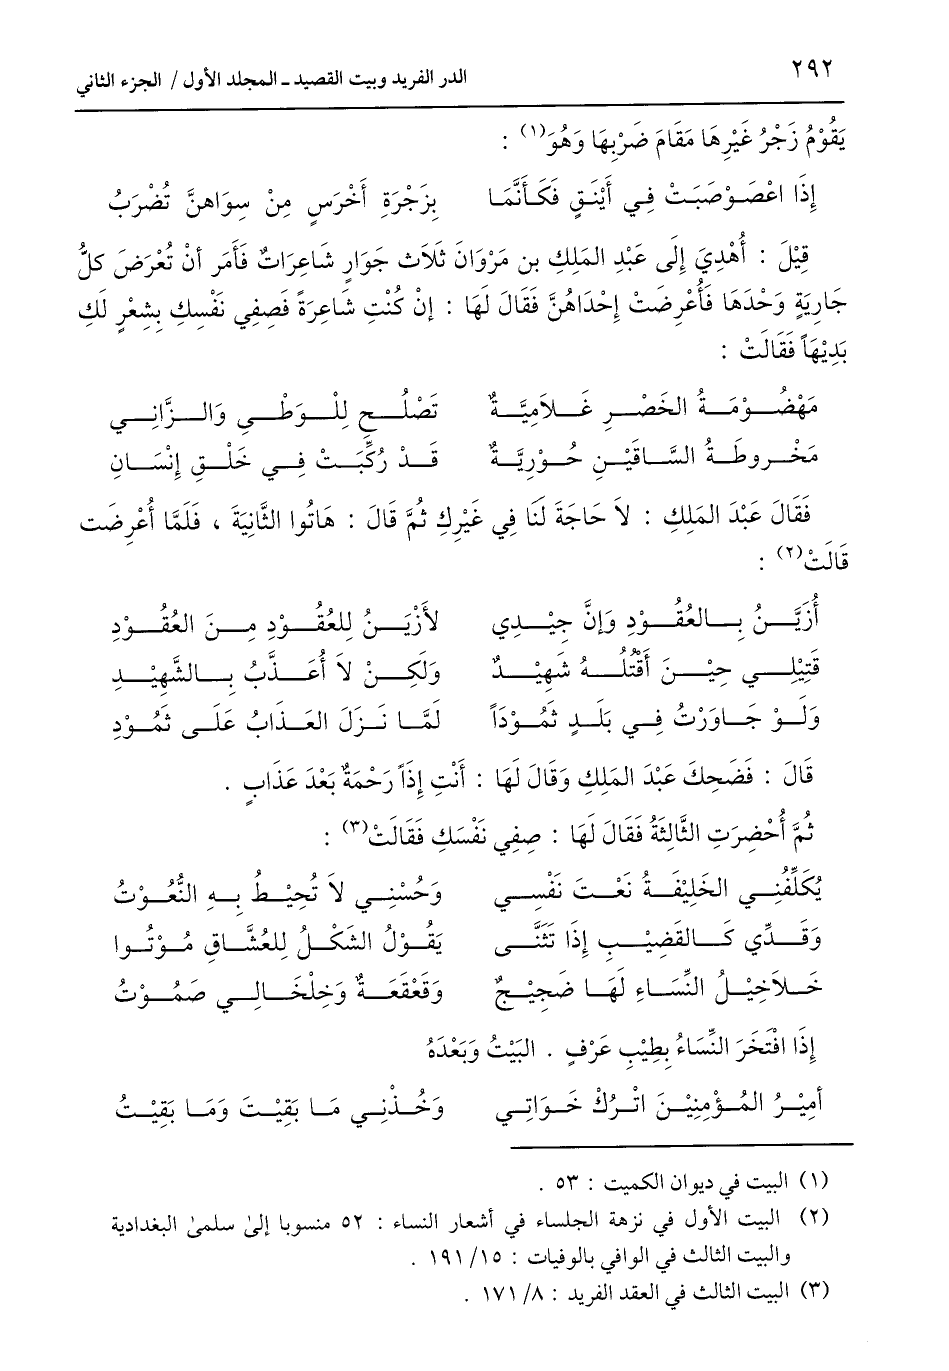 ٢٩٢
الدر الفريد وبيت القصيد ـ المجلد الأول / الجزء الثاني
يَقُوْمُ زَجْرُ غَيْرِهَا مَقَامَ ضَرْبِهَا وَهُوَ(١) :
إِذَا اعْصَوْصَبَتْ فِي أَيْنَقٍ فَكَأَنَّمَا بِزَجْرَةِ أُخْرَى مِنْ سِوَاهنَّ تُضْرَبُ
قِيْلَ : أُهْدِيَ إِلَى عَبْدِ المَلِكِ بن مَرْوَانَ ثَلَاث جَوَارٍ شَاعِرَاتٌ فَأَمَر أَنْ تُعْرَضَ كلُّ
جَارِيَةٍ وَحْدَهَا فَأُعْرِضَتْ إِحْدَاهُنَّ فَقَالَ لَهَا : إِنْ كُنْتِ شَاعِرَةً فَصِفِي نَفْسكِ بِشعْرٍ لَكِ
بَدِيْهَاً فَقَالَتْ :
مَهْضُوْمَةُ الخَصْرِ غَلاَمِيَّةٌ تَصْلُحِ لِلْوَطْيِ وَالزَّانِي
مَخْرُوطَةُ السَّاقَيْنِ حُوْرِيَّةٌ قَدْ رُكِّبَتْ فِي خَلْقِ إِنْسَانِ
فَقَالَ عَبْدَ المَلِكِ : لاَ حَاجَةَ لَنَا فِي غَيْرِكِ ثُمَّ قَالَ : هَاتُوا الثَّانِيَةَ ، فَلَمَّا أُعْرِضَت
قَالَتْ(٢) :
أُزَيَّنُ بِالعُقُوْدِ وَإِنَّ جِيْدِي لأَزْيَنُ لِلعُقُوْدِ مِنَ العُقُوْدِ
قَتِيْلِي حِيْنَ أَقْتُلُهُ شَهِيْدٌ وَلَكِنْ لاَ أُعَذَّبُ بِالشَّهِيْدِ
وَلَوْ جَاوَرْتُ فِي بَلَدٍ ثَمُوْدَاً لَمَّا نَزَلَ العَذَابُ عَلَى ثَمُوْدِ
قَالَ : فَضَحِكَ عَبْدَ المَلِكِ وَقَالَ لَهَا : أَنْتِ إِذَاً رَحْمَةٌ بَعْدَ عَذَابٍ .
ثُمَّ أُحْضِرَتِ الثَّالِثَةُ فَقَالَ لَهَا : صِفِي نَفْسَكِ فَقَالَتْ(٣) :
يُكَلِّفُنِي الخَلِيْفَةُ نَعْتَ نَفْسِي وَحُسْنِي لاَ تُحِيْطُ بِهِ النُّعُوْتُ
وَقَدِّي كَالقَضِيْبِ إِذَا تَثَنَّى يَقُوْلُ الشَّكْلُ لِلعُشَّاقِ مُوْتُوا
خَلاَخِيْلُ النِّسَاءِ لَهَا ضَجِيْجٌ وَقَعْقَعَةٌ وَخِلْخَالِي صَمُوْتُ
إِذَا افْتَخَرَ النِّسَاءُ بِطِيْبِ عَرْفٍ . البَيْتُ وَبَعْدَهُ
أَمِيْرُ المُؤْمِنِيْنَ اتْرُكْ خَوَاتِي وَخُذْنِي مَا بَقِيْتَ وَمَا بَقِيْتُ
(١) البيت في ديوان الكميت : ٥٣ .
(٢) البيت الأول في نزهة الجلساء في أشعار النساء : ٥٢ منسوبا إلىٰ سلمىٰ البغدادية
والبيت الثالث في الوافي بالوفيات : ١٥/ ١٩١ .
(٣) البيت الثالث في العقد الفريد : ٨/ ١٧١ .